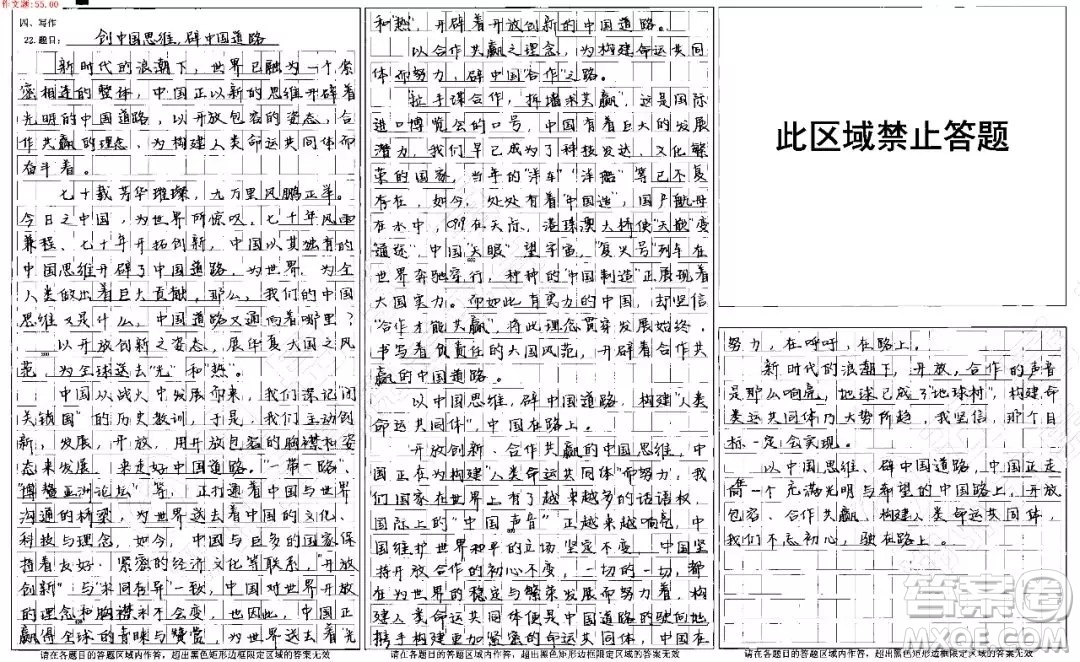 作文题:55.00
四、写作
22.题目: 创中国思维,辟中国道路
新时代的浪潮下,世界已融为一个紧
密相连的整体,中国正以新的思维开辟着
光明的中国道路,以开放包容的姿态,合
作共赢的理念,为构建人类命运共同体而
奋斗着。
七十载芳华璀璨,九万里风鹏正举。
今日之中国,为世界所惊叹,七十年风雨
兼程、七十年开拓创新,中国以其独有的
中国思维开辟了中国道路,为世界、为全
人类做出着巨大贡献。那么,我们的中国
思维又是什么,中国道路又通向着哪里?
以开放创新之姿态,展华夏大国之风
范,为全球送去"光"和"热"。
中国从战火中发展而来,我们深记"闭
关锁国"的历史教训,于是,我们主动创
新,发展,开放,用开放包容的胸襟和姿
态来发展,来走好中国道路。"一带一路"
"博鳌亚洲论坛"等,正打通着中国与世界
沟通的桥梁,为世界送去着中国的文化、
科技与理念,如今,中国与巨多的国家保
持着友好、紧密的经济文化等联系,"开放
创新"与"求同存异"一致,中国对世界开放
的理念和胸襟永不会变,也因此,中国正
赢得全球的青睐与赞赏,为世界送去着光
请在各题目的答题区域内作答,超出黑色矩形边框限定区域的答案无效
和"热",开辟着开放创新的中国道路。
以合作共赢之理念,为构建命运共同
体而努力,辟中国"合作"之路。
"扯手谋合作,拆墙求共赢",这是国际
进口博览会的口号,中国有着巨大的发展
潜力,我们早已成为了科技发达、文化繁
荣的国家,当年的"洋车""洋火"等已不复
存在,如今,处处有着"中国造",国产航母
在水中,C919在天际,港珠澳大桥使"天堑"变
通途,"中国天眼"望宇宙,"复兴号"列车在
世界奔驰穿行,种种的"中国制造"正展现着
大国实力。而如此有实力的中国,却坚信
"合作才能共赢",将此理念贯穿发展始终,
书写着负责任的大国风范,开辟着合作共
赢的中国道路。
以中国思维,辟中国道路,构建"人类
命运共同体",中国在路上。
开放创新、合作共赢的中国思维,中
国正在为构建"人类命运共同体"而努力,我
们国家在世界上有了越来越多的话语权,
国际上的"中国声音"正越来越响亮,中
国维护世界和平的立场坚定不变,中国坚
持开放合作的初心不变,一切的一切,都
在为世界的稳定与繁荣发展而努力着,构
建人类命运共同体便是中国道路的驶向地,
携手构建更加紧密的命运共同体,中国在
请在各题目的答题区域内作答,超出黑色矩形边框限定区域的答案无效
此区域禁止答题
努力,在呼吁,在路上。
新时代的浪潮下,开放,合作的声音
是那么响亮,地球已成了"地球村",构建命
类运共同体乃大势所趋,我坚信,那个目
标一定会实现。
以中国思维、辟中国道路,中国正走
向一个充满光明与希望的中国路上,开放
包容、合作共赢,构建人类命运共同体,
我们不忘初心,驶在路上。
请在各题目的答题区域内作答,超出黑色矩形边框限定区域的答案无效
答案圈
MXQE.COM